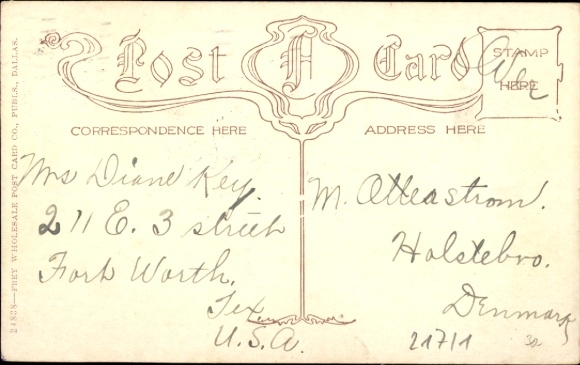 Post Card
STAMP
HERE
Over
CORRESPONDENCE HERE
ADDRESS HERE
Mrs Diane Key.
211 E. 3 street
Fort Worth,
Tex
U.S.A.
M. Otteastrom.
Holstebro.
Denmark
21711
32
24838—FREY WHOLESALE POST CARD CO., PUBLS., DALLAS.